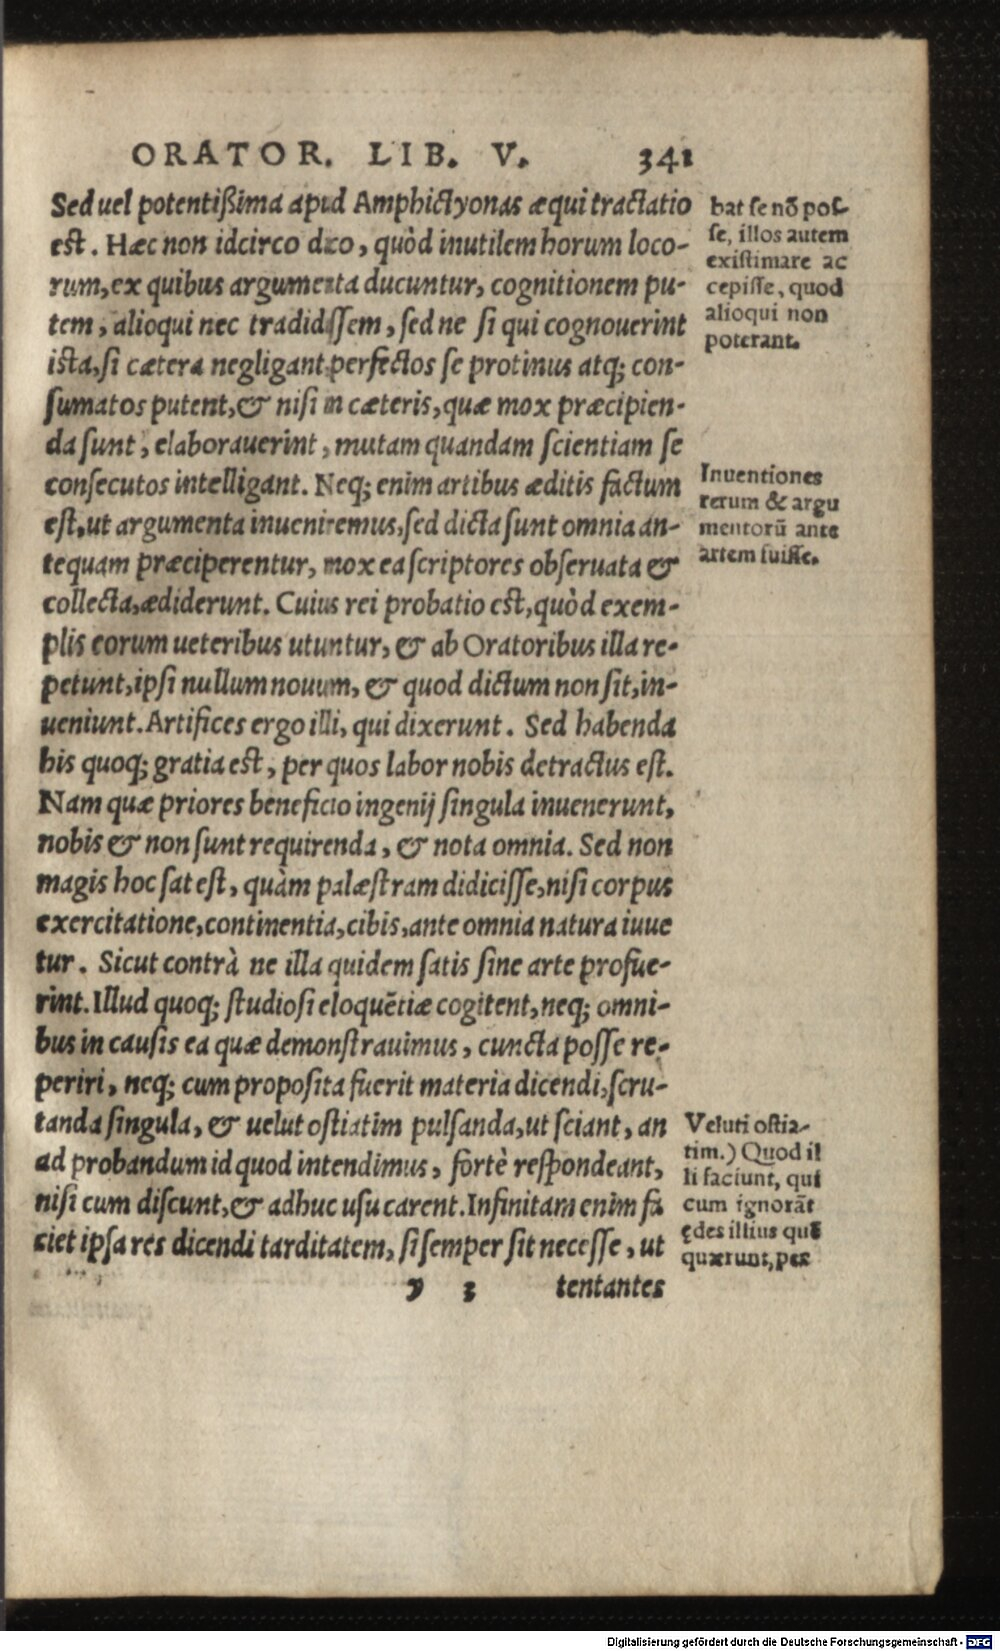 ORATOR. LIB. V. 341
Sed uel potentißima apud Amphictyonas æqui tractatio
est. Hæc non idcirco dico, quòd inutilem horum loco-
rum, ex quibus argumenta ducuntur, cognitionem pu-
tem, alioqui nec tradidissem, sed ne si qui cognouerint
ista, si cætera negligant perfectos se protinus atq; con-
sumatos putent, & nisi in cæteris, quæ mox præcipien-
da sunt, elaborauerint, mutam quandam scientiam se
consecutos intelligant. Neq; enim artibus æditis factum
est, ut argumenta inueniremus, sed dicta sunt omnia an-
tequam præciperentur, mox ea scriptores obseruata &
collecta, ædiderunt. Cuius rei probatio est, quòd exem-
plis eorum ueteribus utuntur, & ab Oratoribus illa re-
petunt, ipsi nullum nouum, & quod dictum non sit, in-
ueniunt. Artifices ergo illi, qui dixerunt. Sed habenda
his quoq; gratia est, per quos labor nobis detractus est.
Nam quæ priores beneficio ingenij singula inuenerunt,
nobis & non sunt requirenda, & nota omnia. Sed non
magis hoc sat est, quàm palæstram didicisse, nisi corpus
exercitatione, continentia, cibis, ante omnia natura iuue
tur. Sicut contrà ne illa quidem satis sine arte profue-
rint. Illud quoq; studiosi eloquētiæ cogitent, neq; omni-
bus in causis ea quæ demonstrauimus, cuncta posse re-
periri, neq; cum proposita fuerit materia dicendi, scru-
tanda singula, & uelut ostiatim pulsanda, ut sciant, an
ad probandum id quod intendimus, fortè respondeant,
nisi cum discunt, & adhuc usu carent. Infinitam enim fa
ciet ipsa res dicendi tarditatem, si semper sit necesse, ut
y 3 tentantes
bat se nō pos-
se, illos autem
existimare ac
cepisse, quod
alioqui non
poterant.
Inuentiones
rerum & argu
mentorū ante
artem fuisse.
Veluti ostia-
tim.) Quod il
li faciunt, qui
cum ignorāt
ędes illius quē
quærunt, per
Digitalisierung gefördert durch die Deutsche Forschungsgemeinschaft - DFG